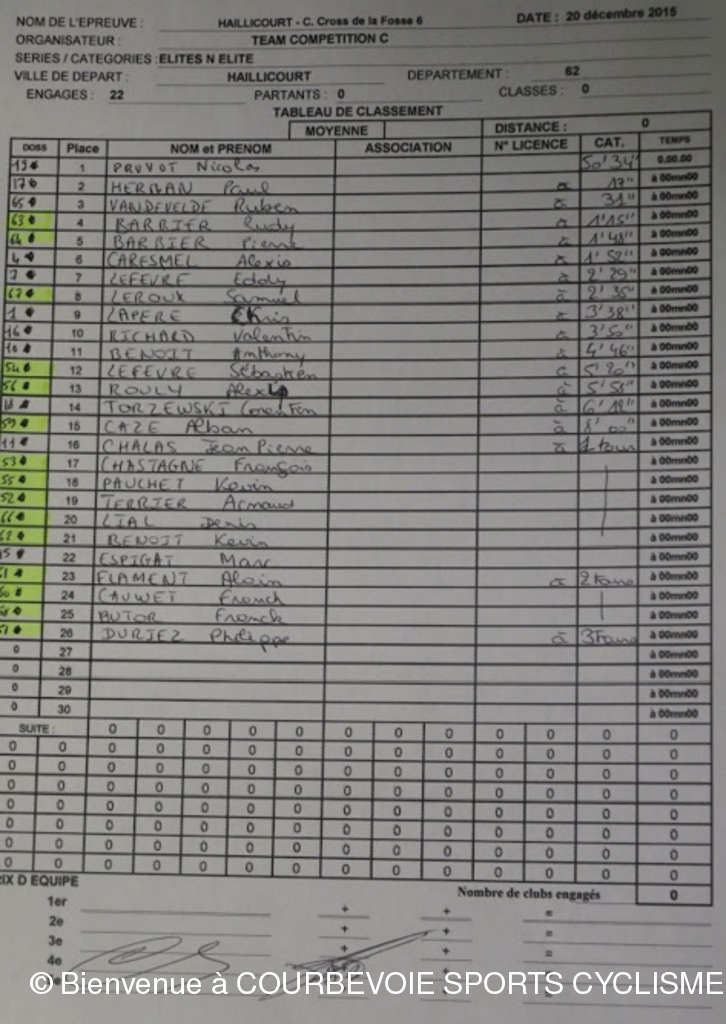 NOM DE L'EPREUVE : HAILLICOURT - C. Cross de la Fosse 6 DATE : 20 décembre 2015
ORGANISATEUR : TEAM COMPETITION C
SERIES / CATEGORIES : ELITES N ELITE
VILLE DE DEPART : HAILLICOURT DEPARTEMENT : 62
ENGAGES : 22 PARTANTS : 0 CLASSES : 0
TABLEAU DE CLASSEMENT
MOYENNE DISTANCE : 0
DOSS Place NOM et PRENOM ASSOCIATION N° LICENCE CAT. TEMPS
19 1 PRUVOT Nicolas 50'34" 0.00.00
17 2 HERMAN Paul à 17" à 00mn00
65 3 VANDEVELDE Ruben à 31" à 00mn00
63 4 BARBIER Rudy à 1'15" à 00mn00
64 5 BARBIER Pierre à 1'48" à 00mn00
4 6 CARESMEL Alexis à 1'52" à 00mn00
7 7 LEFEVRE Eddy à 2'29" à 00mn00
67 8 LEROUX Samuel à 2'35" à 00mn00
1 9 LAPERE Kris à 3'38" à 00mn00
16 10 RICHARD Valentin à 3'50" à 00mn00
10 11 BENOIT Anthony à 4'46" à 00mn00
54 12 LEFEVRE Sébastien à 5'20" à 00mn00
56 13 ROULY Alexis à 5'58" à 00mn00
14 TORZEWSKI Corentin à 6'12" à 00mn00
59 15 CAZE Alban à 8'00" à 00mn00
11 16 CHALAS Jean Pierre à 1 tour à 00mn00
53 17 CHASTAGNE François à 00mn00
55 18 PAUCHET Kevin à 00mn00
52 19 TERRIER Arnaud à 00mn00
66 20 LIAL Denis à 00mn00
62 21 BENOIT Kevin à 00mn00
22 ESPIGAT Marc à 00mn00
23 FLAMENT Alain à 2 tours à 00mn00
24 CAUWET Franck à 00mn00
25 BUTOR Franck à 00mn00
26 DURIEZ Philippe à 3 Tours à 00mn00
0 27 à 00mn00
0 28 à 00mn00
0 29 à 00mn00
0 30 à 00mn00
SUITE : 0 0 0 0 0 0 0 0 0 0 0
0 0 0 0 0 0 0 0 0 0 0 0 0
0 0 0 0 0 0 0 0 0 0 0 0 0
0 0 0 0 0 0 0 0 0 0 0 0 0
0 0 0 0 0 0 0 0 0 0 0 0 0
0 0 0 0 0 0 0 0 0 0 0 0 0
0 0 0 0 0 0 0 0 0 0 0 0 0
0 0 0 0 0 0 0 0 0 0 0 0 0
IX D EQUIPE Nombre de clubs engagés 0
1er + + =
2e + + =
3e + + =
4e + + =
© Bienvenue à COURBEVOIE SPORTS CYCLISME